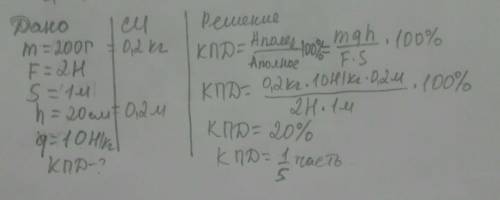 Дано
m = 200г = 0,2 кг
F = 2Н
S = 1м
h = 20см = 0,2м
g = 10Н/кг
КПД - ?
СИ
Решение
КПД = Aполез / Aполное 100% = mgh / F·S · 100%
КПД = 0,2кг·10Н/кг·0,2м / 2Н·1м · 100%
КПД = 20%
КПД = 1/5 часть